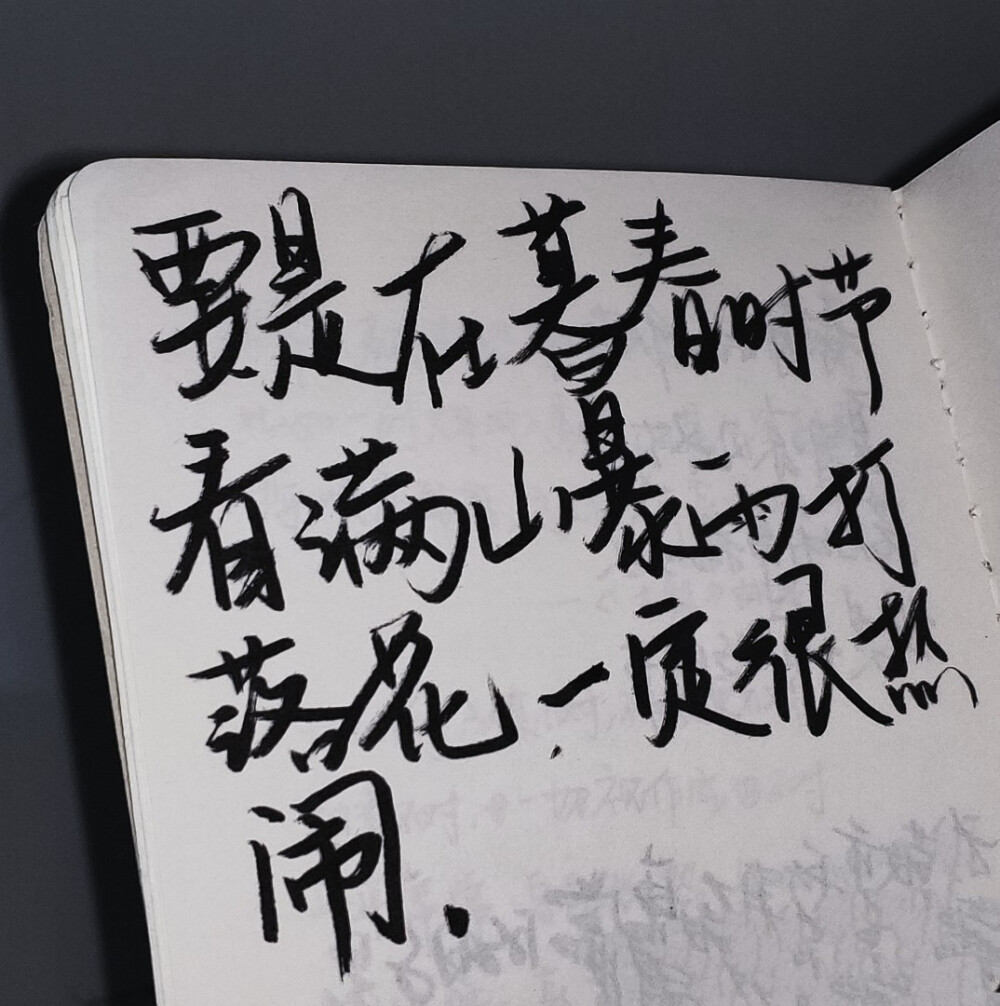 要是在暮春时节
看满山暴雨打
落花.一定很热
闹.